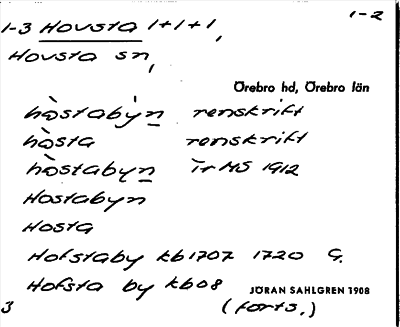 1-2
1-3 Hovsta 1+1+1,
Hovsta sn,
Örebro hd, Örebro län
hòstabẏn renskrift
hòsta renskrift
hòstabyn Tr MS 1912
Hostabyn
Hosta
Hofstaby kb1707 1720 G.
Hofsta by kb08
JÖRAN SAHLGREN 1908
3 (forts.)